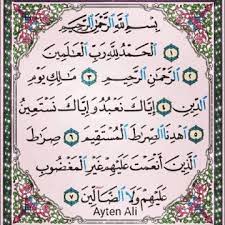 بِسْمِ اللَّهِ الرَّحْمَٰنِ الرَّحِيمِ ١
الْحَمْدُ لِلَّهِ رَبِّ الْعَالَمِينَ
٢ الرَّحْمَٰنِ الرَّحِيمِ ٣ مَالِكِ يَوْمِ
الدِّينِ ٤ إِيَّاكَ نَعْبُدُ وَإِيَّاكَ نَسْتَعِينُ
٥ اهْدِنَا الصِّرَاطَ الْمُسْتَقِيمَ ٦ صِرَاطَ
الَّذِينَ أَنْعَمْتَ عَلَيْهِمْ غَيْرِ الْمَغْضُوبِ
عَلَيْهِمْ وَلَا الضَّالِّينَ ٧
Ayten Ali